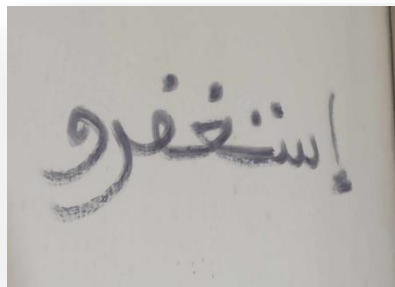 إستغفرو